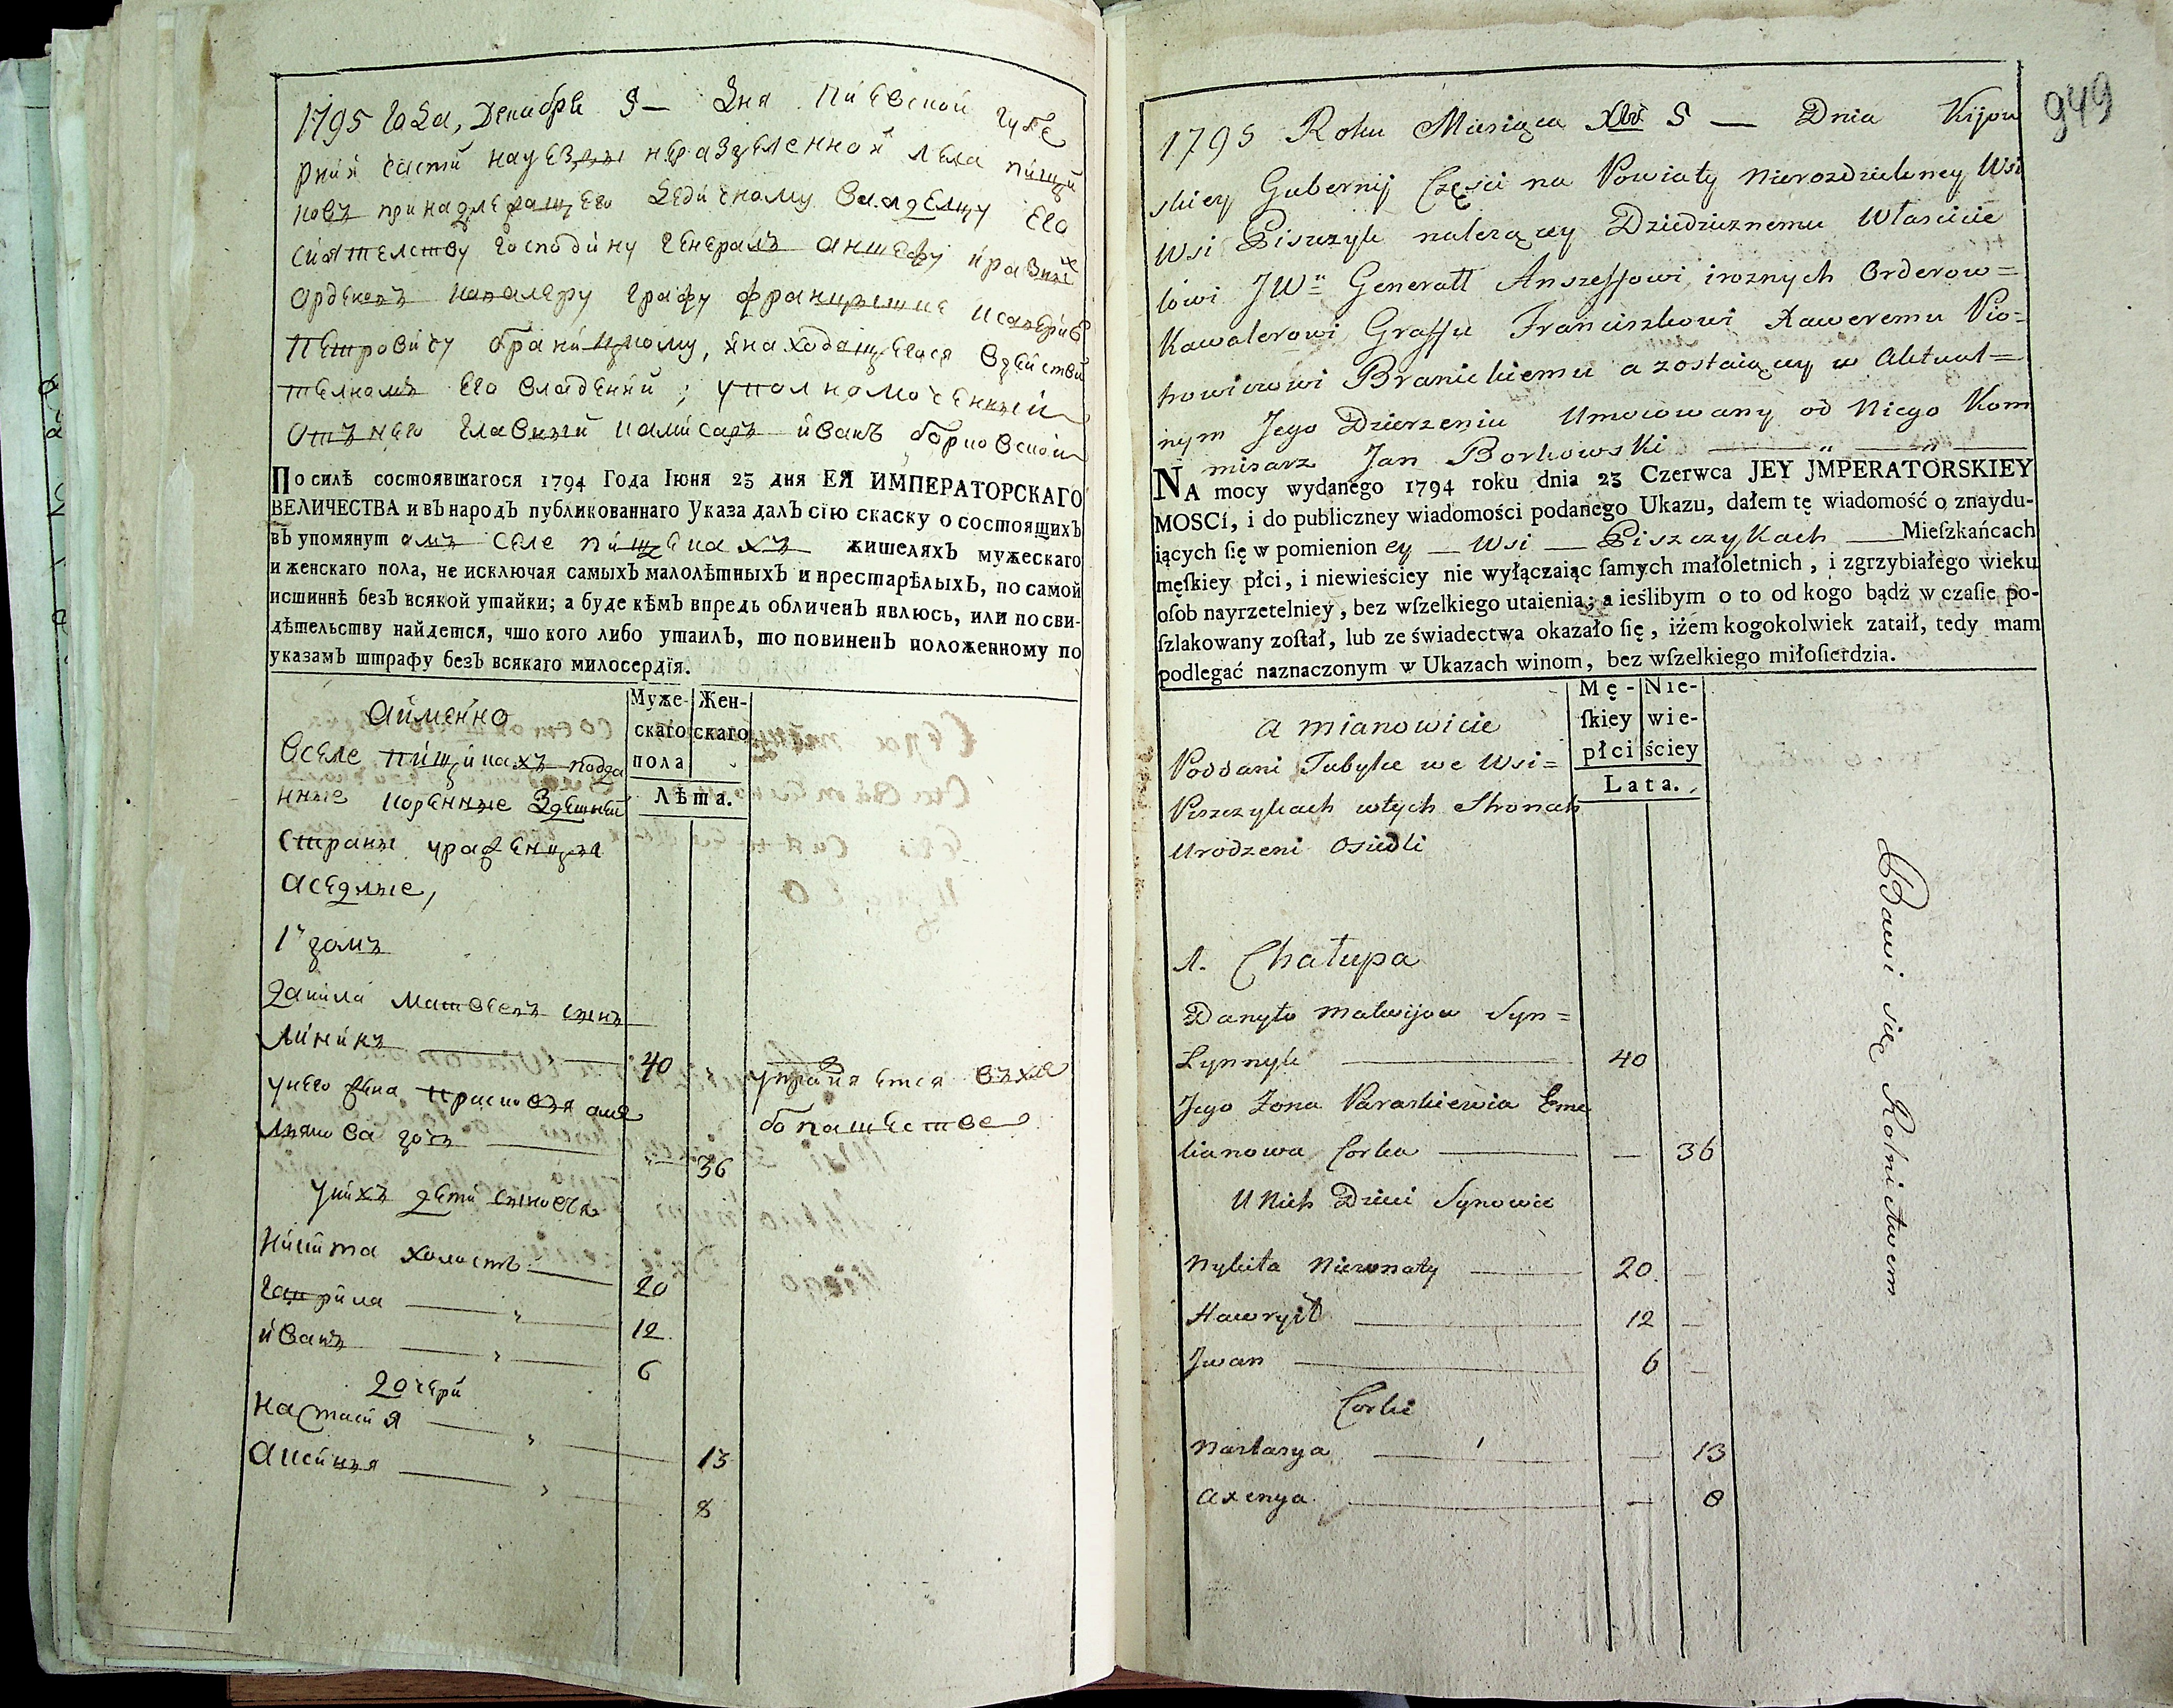 1795 Года, Декабря 5 — Дня Киевской Губе
рнии части на уезды неразделенной села пищи
ковъ принадлежащего Дедичному Владелцу Его
сиятелству Господину Генералъ Аншефу и разныхъ
Орденовъ Кавалеру Графу Францышке Ксаверию
Петровичу браницкому, и находящегося в действи
телномъ Его владении; уполномоченный
Отъ него главный камисаръ иванъ борковский
По силѣ состоявшагося 1794 Года Iюня 23 дня ЕЯ ИМПЕРАТОРСКАГО
ВЕЛИЧЕСТВА и въ народъ публикованнаго Указа далъ сiю скаску о состоящихъ
въ упомянут омъ селе пищикахъ жителяхъ мужескаго
и женскаго пола, не исключая самыхъ малолѣтныхъ и престарѣлыхъ, по самой
истиннѣ безъ всякой утайки; а буде кѣмъ впредь обличенъ явлюсь, или по сви-
дѣтельству найдется, что кого либо утаилъ, то повиненъ положенному по
указамъ штрафу безъ всякаго милосердiя.
Муже- Жен-
скаго скаго
пола
Лѣта.
а именно
В селе пищикахъ подда
нные коренные Здешней
страны уроженцы
аседлые,
1й домъ
данила матвеевъ сынъ
линикъ — 40
упражняется въ хле
бопашестве
у него жена прасковя оме
лянова дочь — 36
у нихъ дети сыновья
никита холостъ — 20
гаврила — „ — 12
иванъ — „ — 6
дочери
настасия — „ — 13
аксиния — „ — 8
949
1795 Roku Miesiąca Xbr 5 — Dnia Kijow
skiey Gubernij Części na Powiaty nierozdzieloney Wsi
Wsi Piszczyk należącey Dziedzicznemu Włascicie
lówi JWu Generałł Anszeffowi iroznych Orderow=
Kawalerowi Graffu Franciszkowi Xaweremu Pio=
trowiczowi Branickiemu a zostaiącey w Aktual=
nym Jego Dzierzeniu Umocowany od Niego Kom
misarz Jan Borkowski — „ — „ —
NA mocy wydanego 1794 roku dnia 23 Czerwca JEY JMPERATORSKIEY
MOSCI, i do publiczney wiadomości podanego Ukazu, dałem tę wiadomość o znaydu-
iących ſię w pomienion ey — Wsi — Piszczykach — Mieſzkańcach
męſkiey płci, i niewieściey nie wyłączaiąc ſamych małoletnich, i zgrzybiałego wieku
oſob nayrzetelniey, bez wſzelkiego utaienia; a ieślibym o to od kogo bądź w czaſie po-
ſzlakowany zoſtał, lub ze świadectwa okazało ſię, iżem kogokolwiek zataił, tedy mam
podlegać naznaczonym w Ukazach winom, bez wſzelkiego miłoſierdzia.
Mę- Nie-
ſkiey wie-
płci ściey
Lata.
a mianowicie
Poddani Tubylce we Wsi=
Piszczykach wtych Stronach
Urodzeni Osiedli
1. Chałupa
Danyło matwijow Syn=
Lynnyk — 40
Jego Żona Paraskiewia Eme
lianowa Corka — — 36
U Nich Dzieci Synowie
Nykita Nieżonaty — 20 —
Hawryił — 12 —
Jwan — 6 —
Corki
Nastasya — — 13
Axenya — — 8
Bawi się Rolnictwem